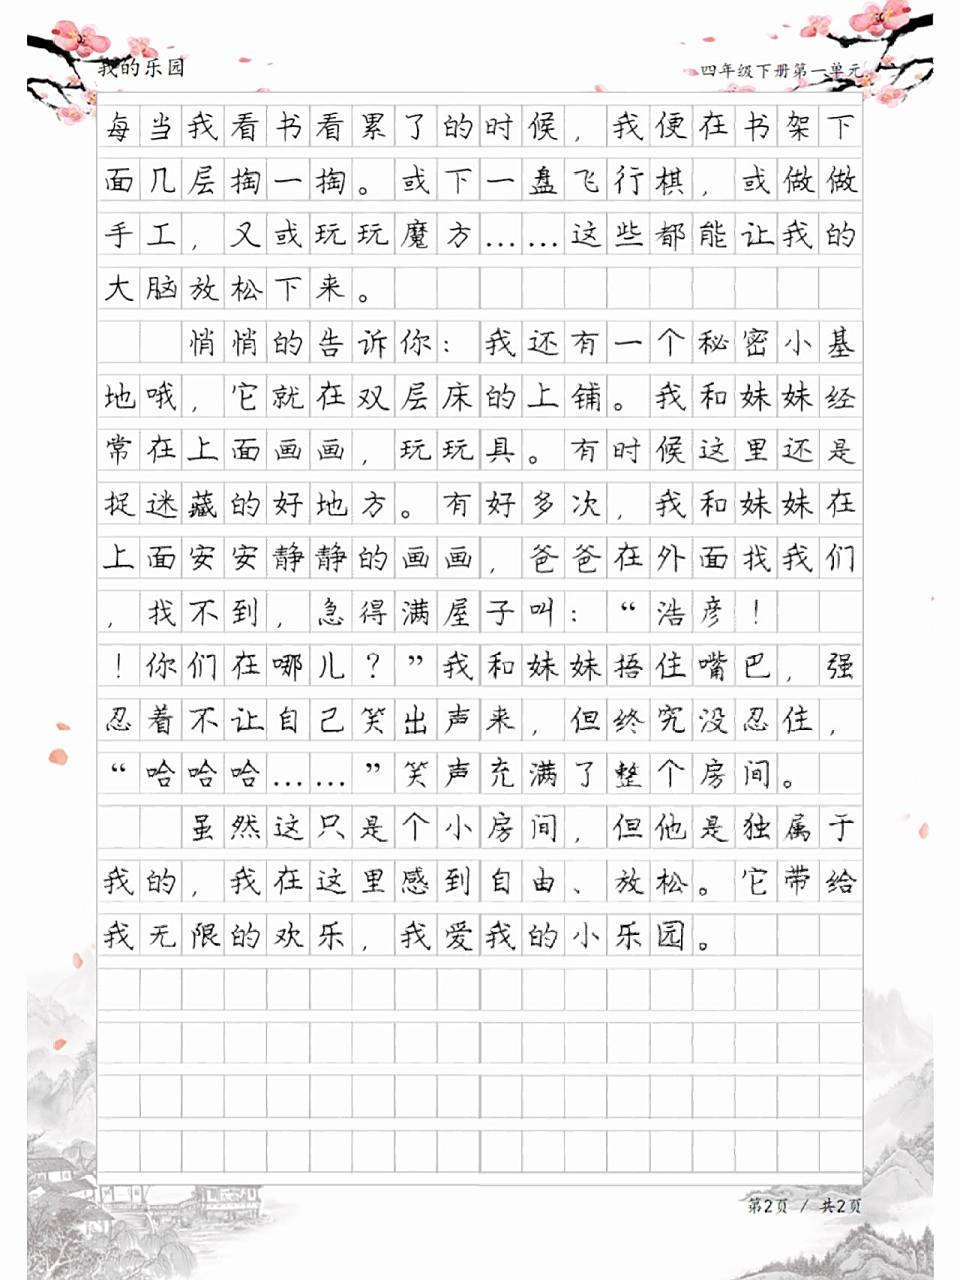 我的乐园
四年级下册第一单元
每当我看书看累了的时候，我便在书架下
面几层掏一掏。或下一盘飞行棋，或做做
手工，又或玩玩魔方……这些都能让我的
大脑放松下来。
悄悄的告诉你：我还有一个秘密小基
地哦，它就在双层床的上铺。我和妹妹经
常在上面画画，玩玩具。有时候这里还是
捉迷藏的好地方。有好多次，我和妹妹在
上面安安静静的画画，爸爸在外面找我们
，找不到，急得满屋子叫：“浩彦！
！你们在哪儿？”我和妹妹捂住嘴巴，强
忍着不让自己笑出声来，但终究没忍住，
“哈哈哈……”笑声充满了整个房间。
虽然这只是个小房间，但他是独属于
我的，我在这里感到自由、放松。它带给
我无限的欢乐，我爱我的小乐园。
第2页 / 共2页